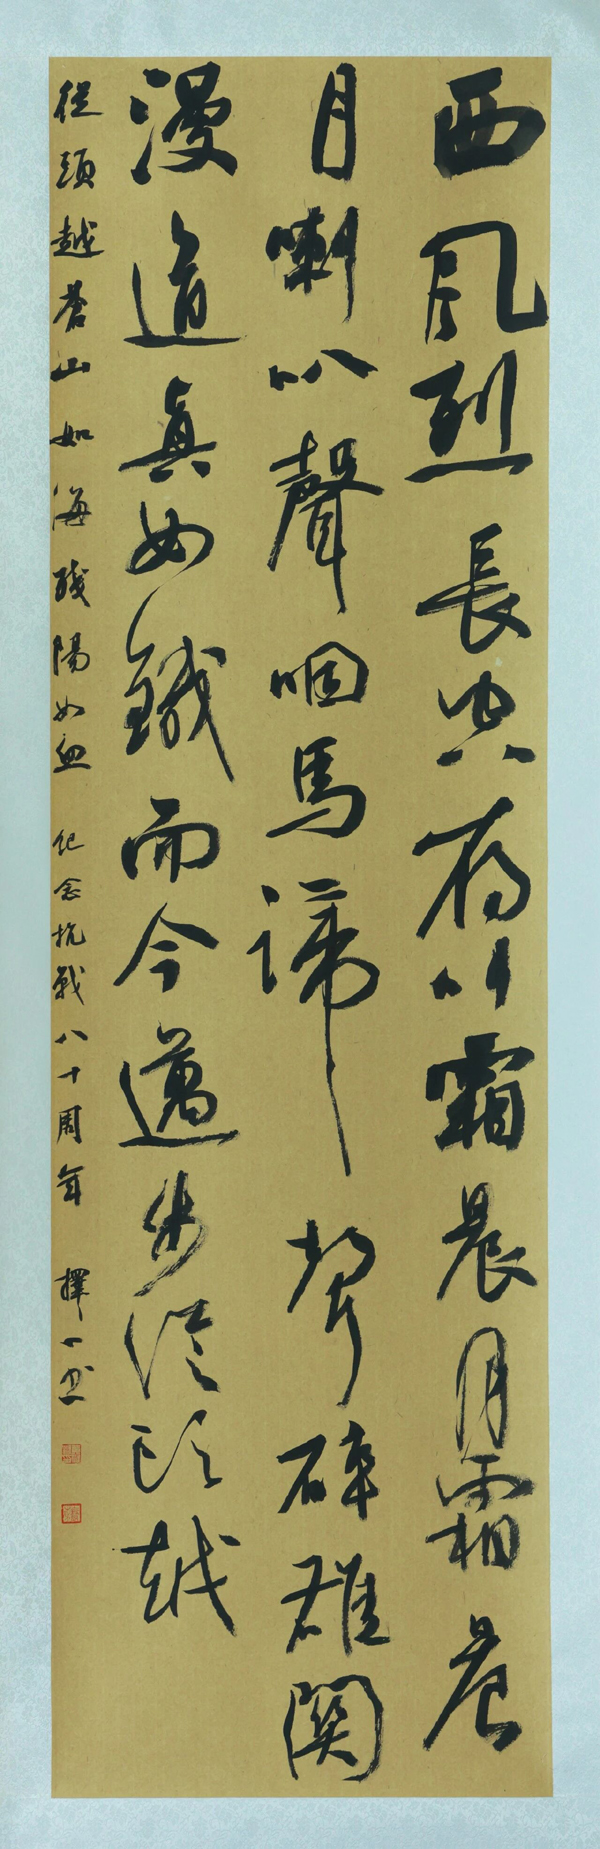 西風烈長空雁叫霜晨月霜晨
月喇叭聲咽馬蹄聲碎雄關
漫道真如鐵而今邁步從頭越
從頭越蒼山如海殘陽如血 紀念抗戰八十周年 擇一書